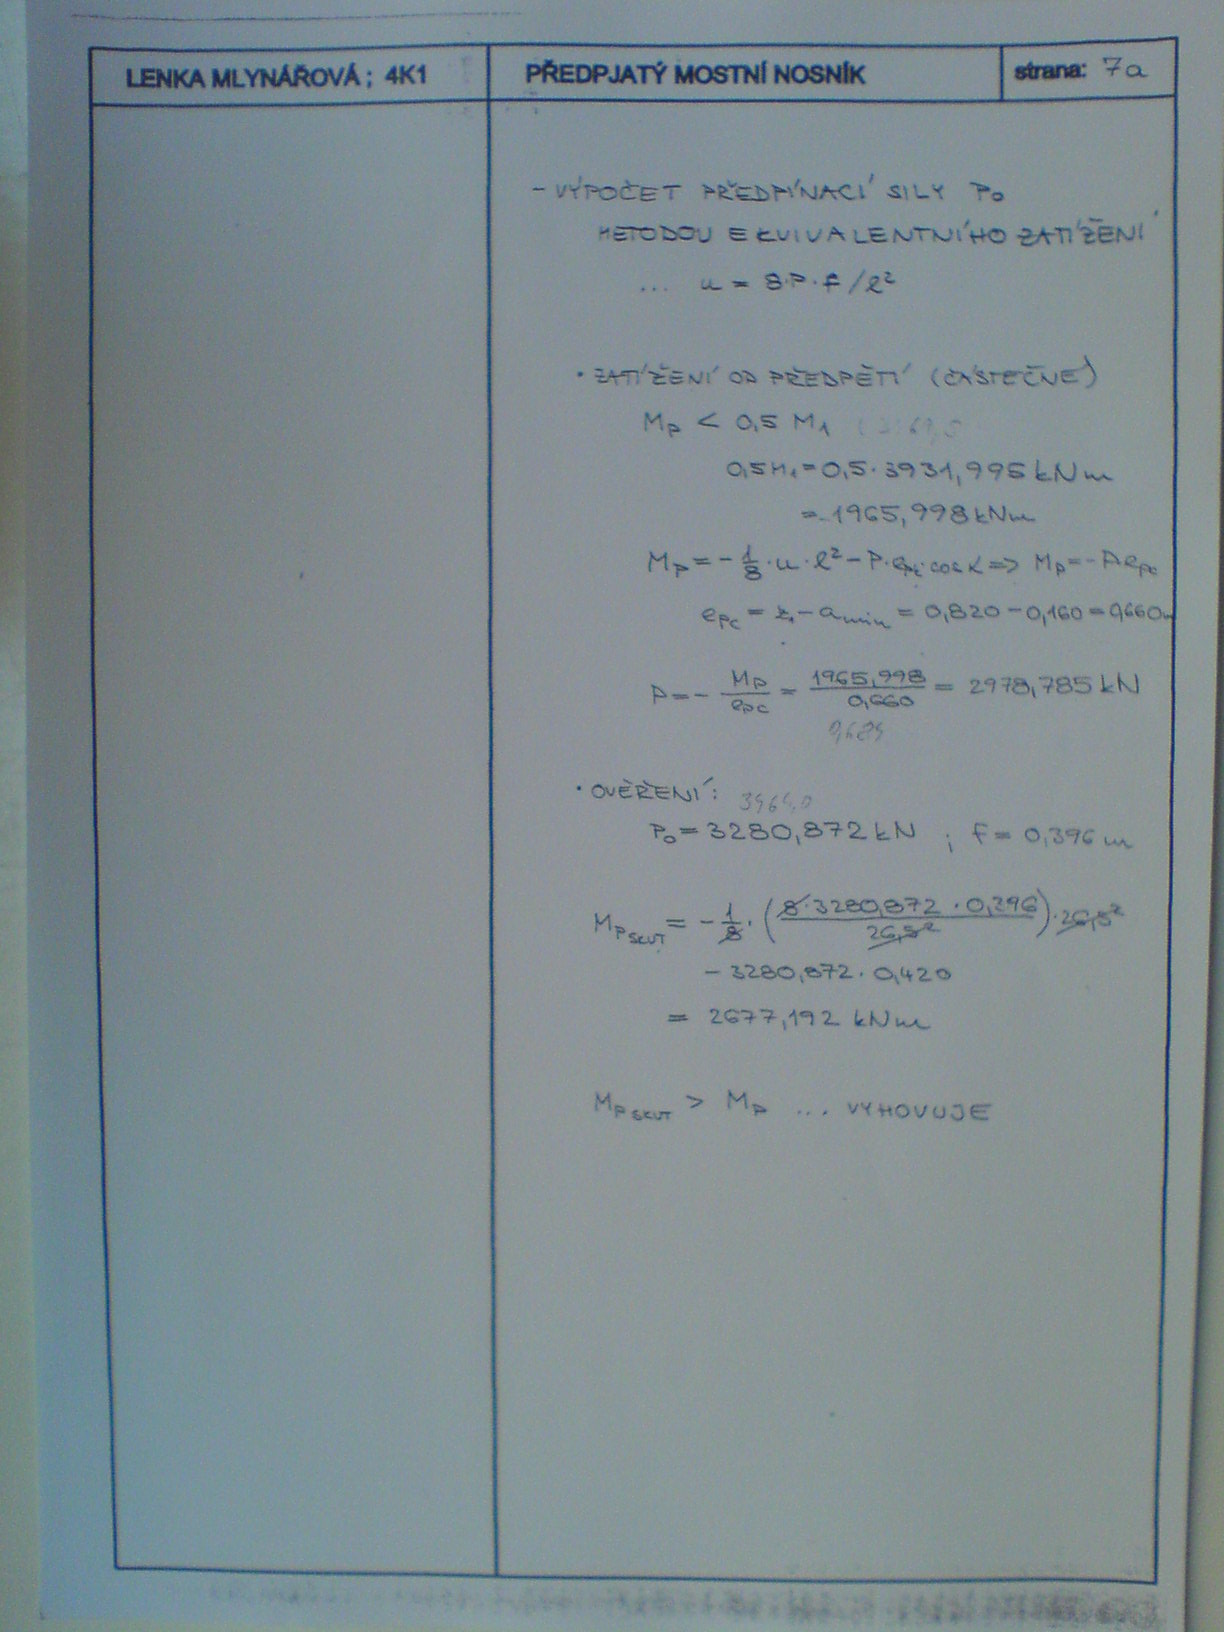 LENKA MLYNÁŘOVÁ ; 4K1
PŘEDPJATÝ MOSTNÍ NOSNÍK
strana: 7a
- VÝPOČET PŘEDPÍNACÍ SÍLY P₀
METODOU EKVIVALENTNÍHO ZATÍŽENÍ
... u = 8·P·f/l²
• ZATÍŽENÍ OD PŘEDPĚTÍ (ČÁSTEČNÉ)
Mp < 0,5 M₁
0,5M₁ = 0,5·3931,995 kNm
= 1965,998 kNm
Mp = - 1/8 · u · l² - P·epc·cos α => Mp = - P·epc
epc = z₁ - amin = 0,820 - 0,160 = 0,660m
P = - Mp/epc = 1965,998/0,660 = 2978,785 kN
• OVĚŘENÍ:
P₀ = 3280,872 kN ; f = 0,396 m
Mp SKUT = - 1/8 · (8·3280,872 · 0,396 / 26,5²) · 26,5²
- 3280,872 · 0,420
= 2677,192 kNm
Mp SKUT > Mp ... VYHOVUJE